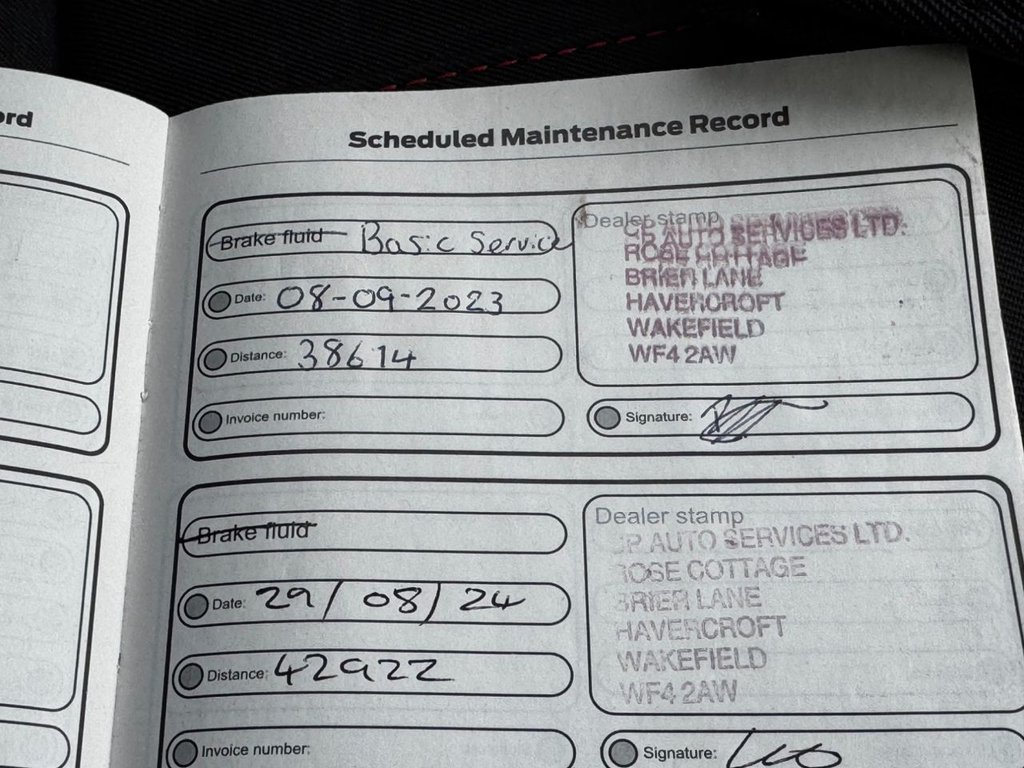 ord
Scheduled Maintenance Record
Brake fluid Basic Service
Date: 08-09-2023
Distance: 38614
Invoice number:
Dealer stamp
AUTO SERVICES LTD.
ROSE COTTAGE
BRIER LANE
HAVERCROFT
WAKEFIELD
WF4 2AW
Signature:
Brake fluid
Date: 29/08/24
Distance: 42922
Invoice number:
Dealer stamp
AUTO SERVICES LTD.
ROSE COTTAGE
BRIER LANE
HAVERCROFT
WAKEFIELD
WF4 2AW
Signature: